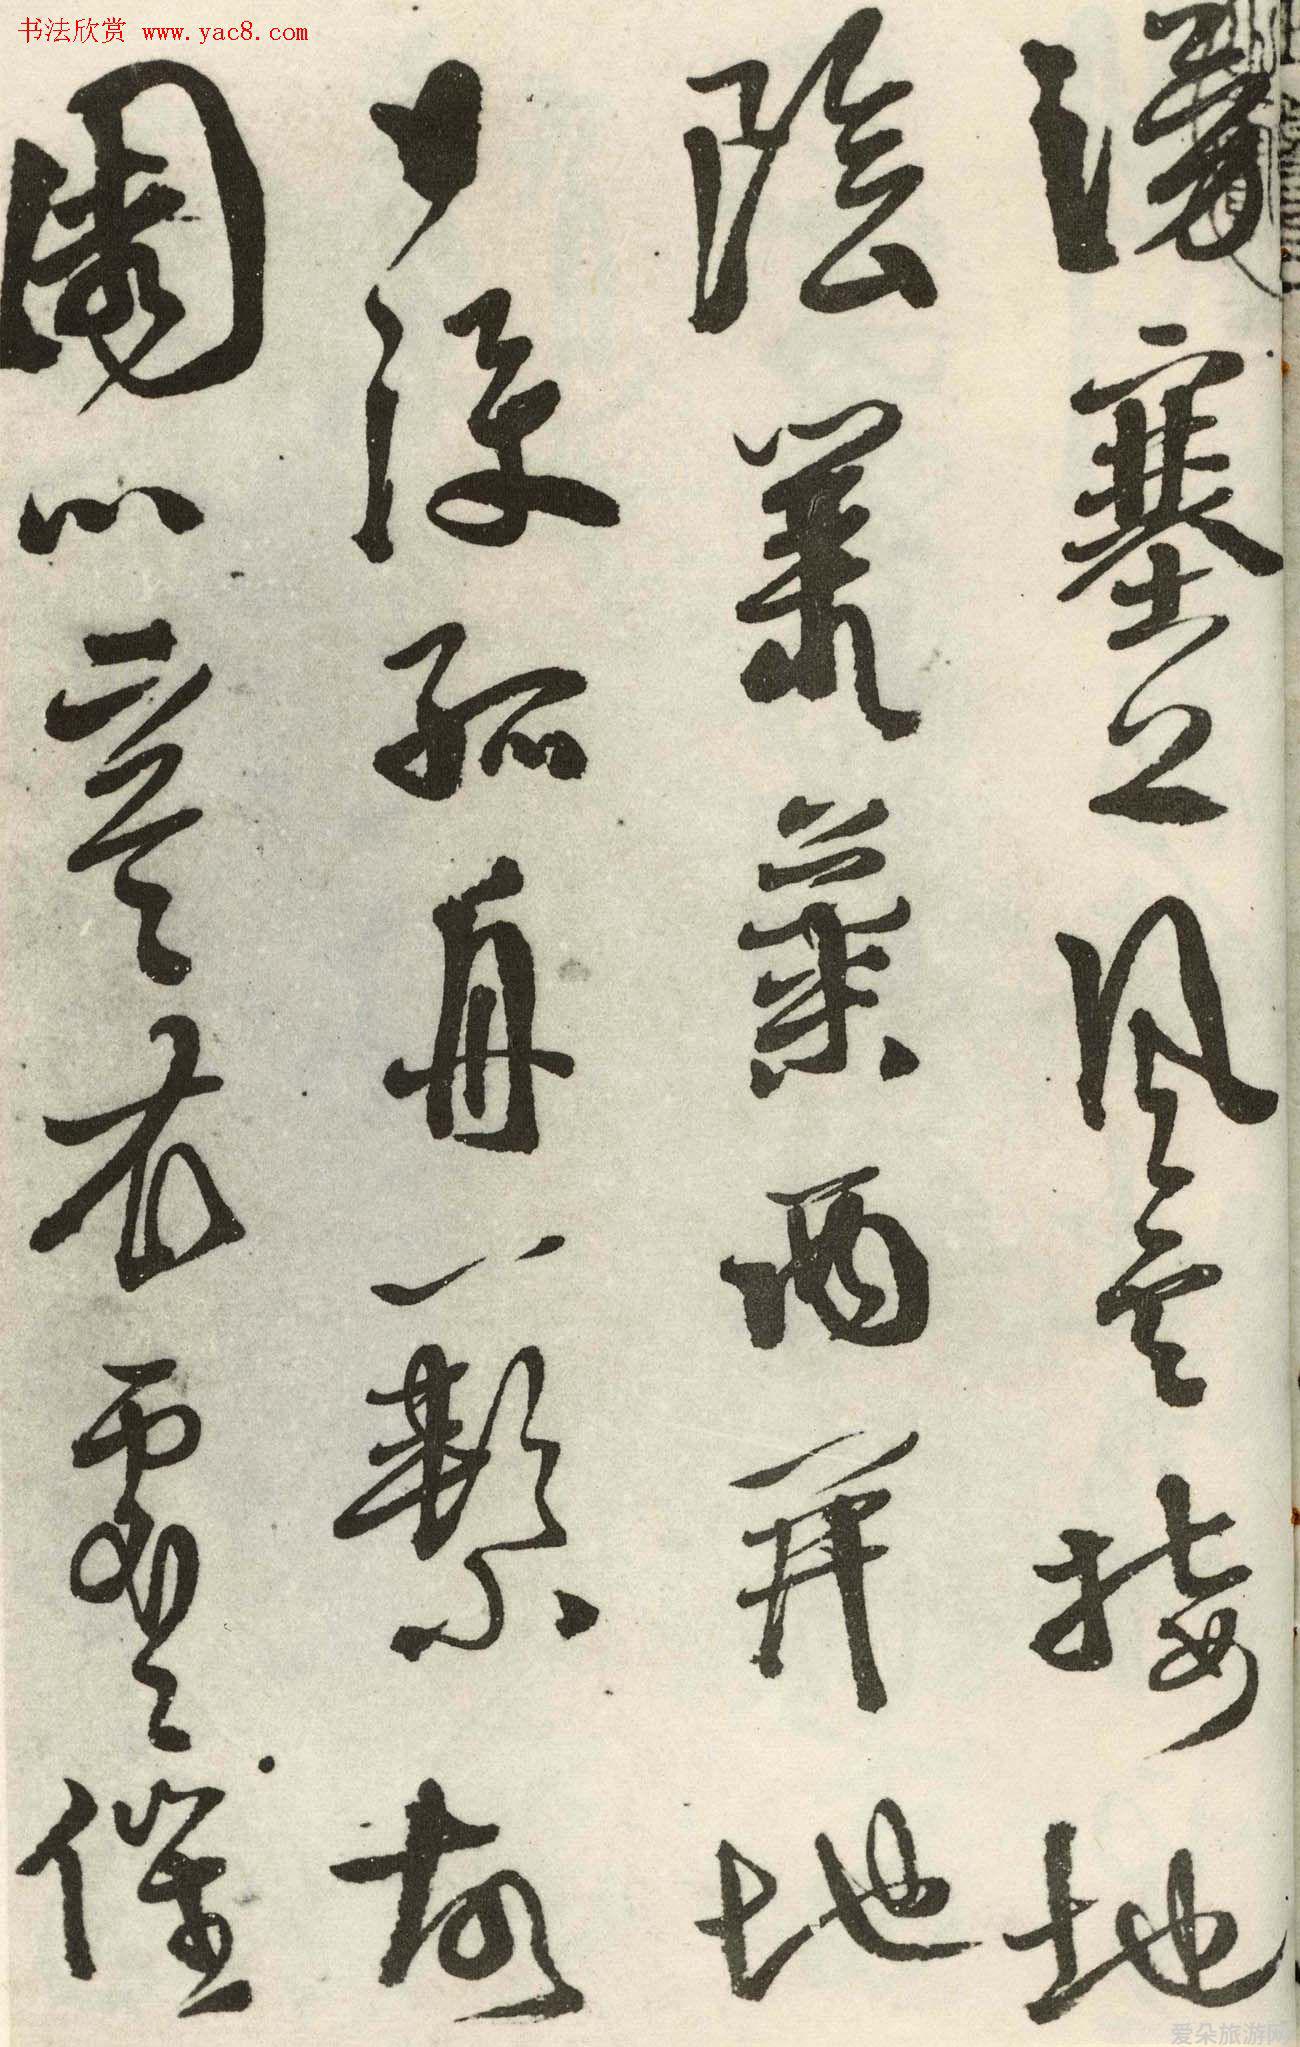 书法欣赏 www.yac8.com
湧塞上風雲接地
陰叢菊兩開地
日淚孤舟一繫故
園心寒衣處〻催
爱朵旅游网